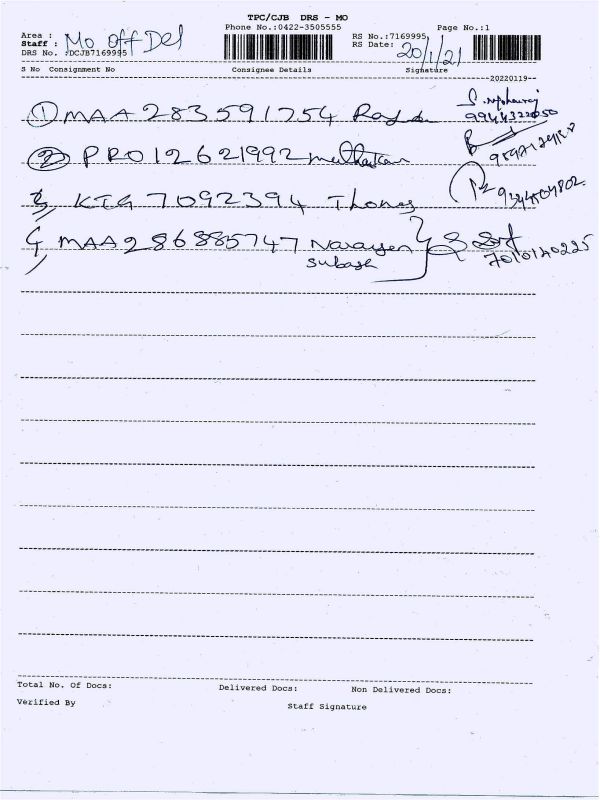 TPC/CJB DRS - MO
Phone No.:0422-3505555 Page No.:1
Area : Mo Off Del RS No.:7169995
Staff : RS Date: 20/1/21
DRS No. :DCJB7169995
S No Consignment No Consignee Details Signature
20220119
1 MAA 283591754
9944322050
2 PRO 12621992 muthukan
3, KTG 7092394 Thomas 9344504802
4, MAA 286885747 Narayen
Subash 7010140225
Total No. Of Docs: Delivered Docs: Non Delivered Docs:
Verified By Staff Signature